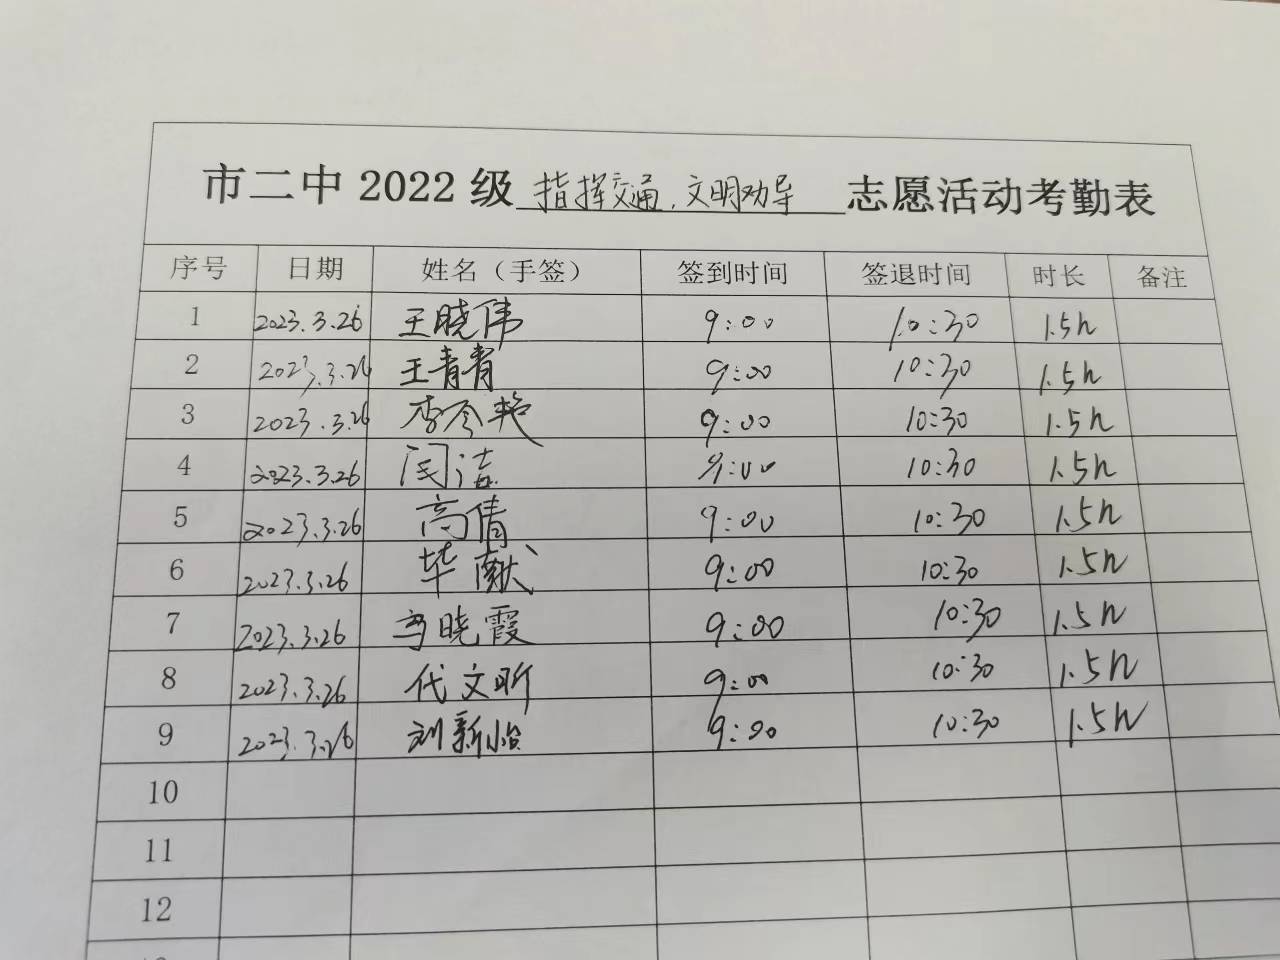 市二中2022级 指挥交通、文明劝导 志愿活动考勤表
序号 日期 姓名（手签） 签到时间 签退时间 时长 备注
1 2023.3.26 王晓伟 9:00 10:30 1.5h
2 2023.3.26 王青青 9:00 10:30 1.5h
3 2023.3.26 李令艳 9:00 10:30 1.5h
4 2023.3.26 闫洁 9:00 10:30 1.5h
5 2023.3.26 高倩 9:00 10:30 1.5h
6 2023.3.26 毕献 9:00 10:30 1.5h
7 2023.3.26 晓霞 9:00 10:30 1.5h
8 2023.3.26 代文昕 9:00 10:30 1.5h
9 2023.3.26 刘新怡 9:00 10:30 1.5h
10
11
12